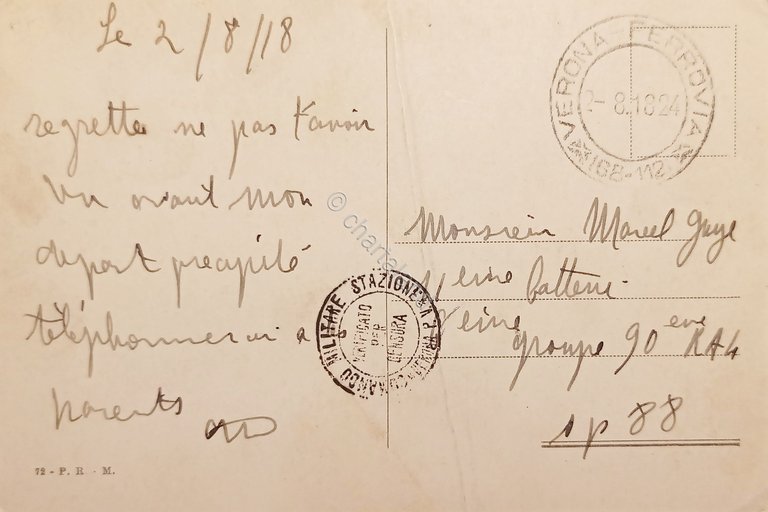 Le 2/8/18
regrette ne pas t'avoir
vu avant mon
départ précipité
téléphonnerai a
parents
72 - P. R. M.
VERONA - FERROVIA
2 - 8.18 24
(168-112)
© charte
COMANDO MILITARE STAZIONE
VERIFICATO
PER
CENSURA
Monsieur Marcel
11eme batterie
eme groupe 90eme RA
sp 88